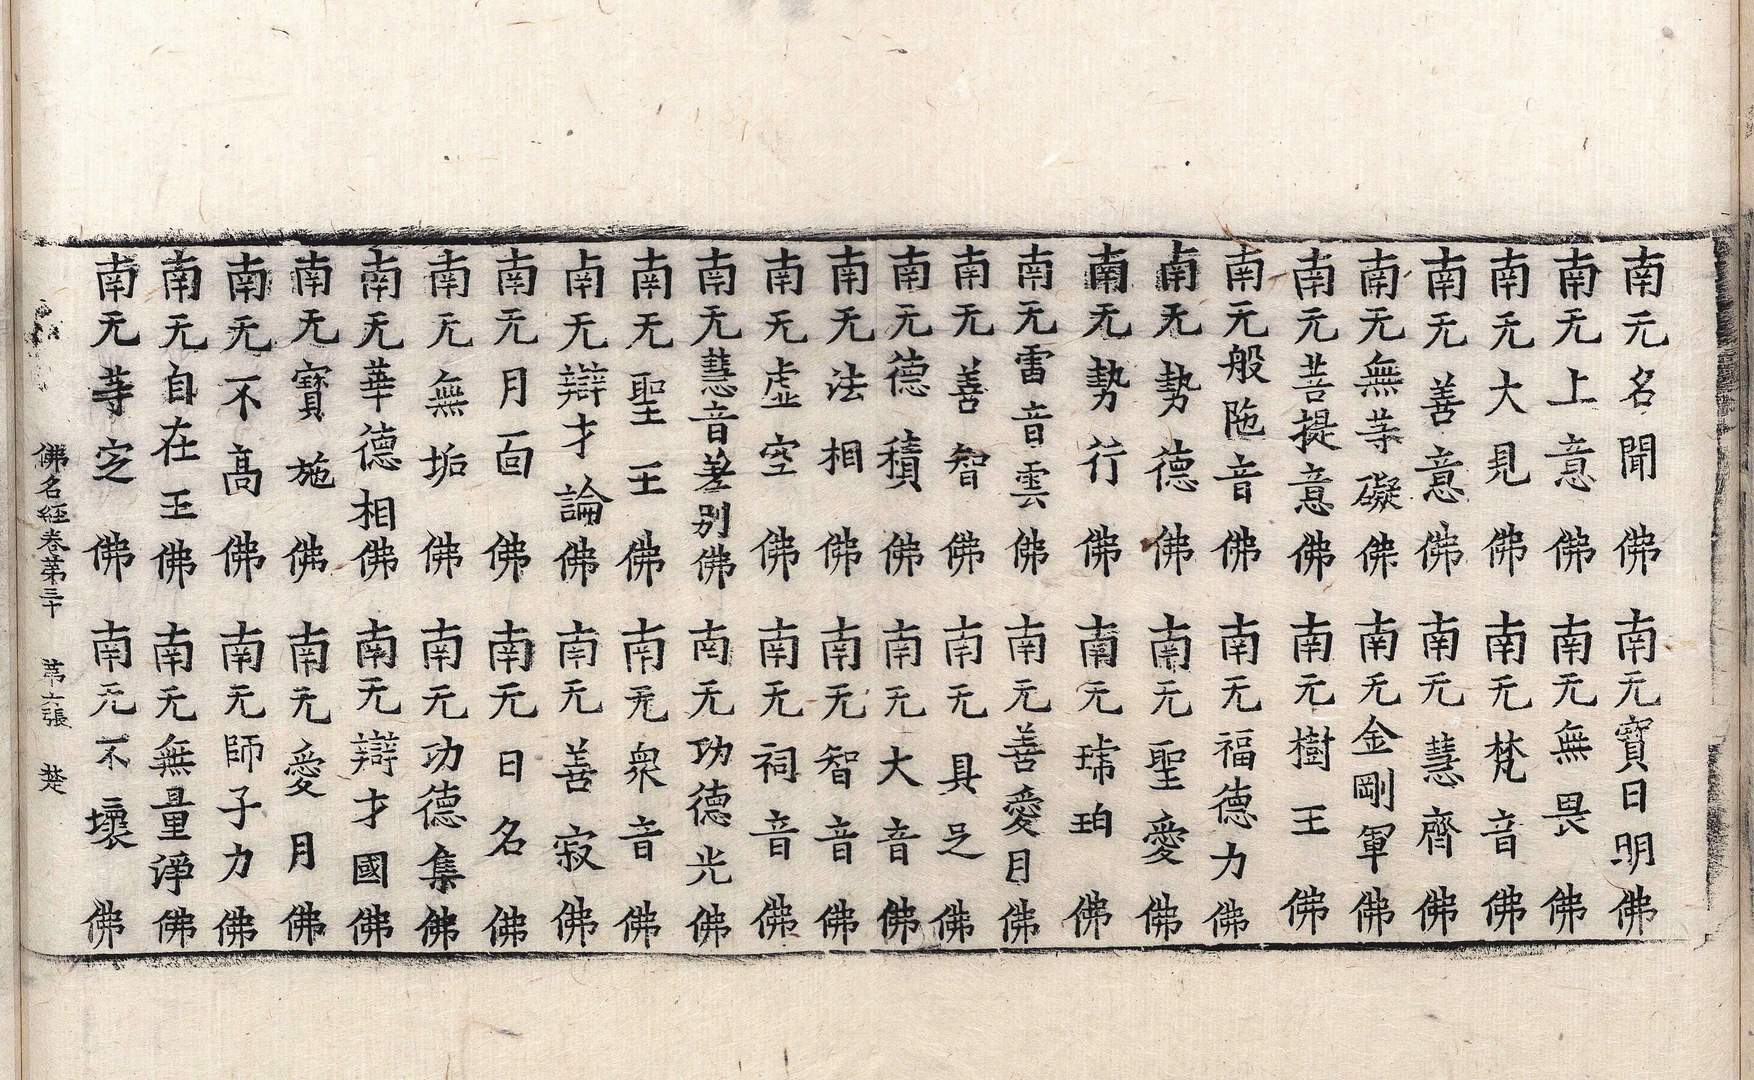 南无名聞佛 南无寶日明佛
南无上意佛 南无無畏佛
南无大見佛 南无梵音佛
南无善意佛 南无慧齊佛
南无無等礙佛 南无金剛軍佛
南无菩提意佛 南无樹王佛
南无般陁音佛 南无福德力佛
南无勢德佛 南无聖愛佛
南无勢行佛 南无琥珀佛
南无雷音雲佛 南无善愛目佛
南无善智佛 南无具足佛
南无德積佛 南无大音佛
南无法相佛 南无智音佛
南无虛空佛 南无祠音佛
南无慧音差别佛 南无功德光佛
南无聖王佛 南无衆音佛
南无辯才論佛 南无善寂佛
南无月面佛 南无日名佛
南无無垢佛 南无功德集佛
南无華德相佛 南无辯才國佛
南无寶施佛 南无愛月佛
南无不高佛 南无師子力佛
南无自在王佛 南无無量淨佛
南无等定佛 南无不壞佛
佛名經卷第三十 第六張 楚